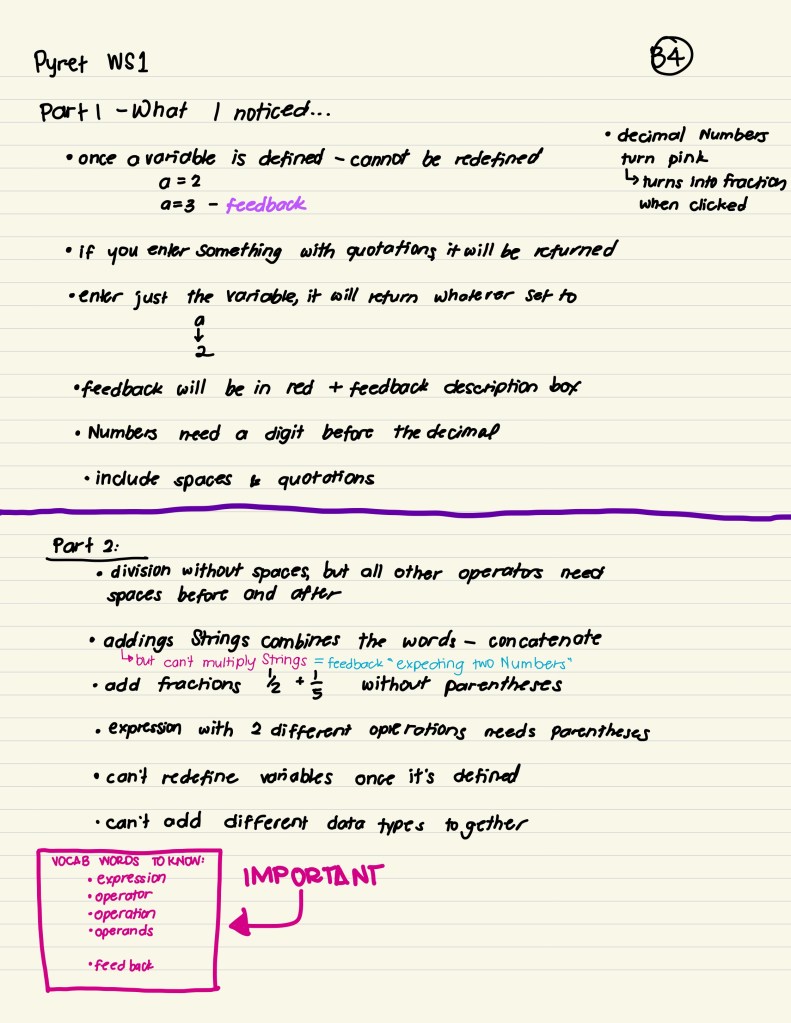 Pyret WS1
B4
Part 1 - What I noticed...
• decimal Numbers
turn pink
↳ turns into fraction
when clicked
• once a variable is defined - cannot be redefined
a = 2
a=3 - feedback
• if you enter something with quotations it will be returned
• enter just the variable, it will return whatever set to
a
↓
2
• feedback will be in red + feedback description box
• Numbers need a digit before the decimal
• include spaces & quotations
Part 2:
• division without spaces, but all other operators need
spaces before and after
• addings Strings combines the words - concatenate
↳ but can't multiply Strings = feedback "expecting two Numbers"
• add fractions 1/2 + 1/5 without parentheses
• expression with 2 different operations needs parentheses
• can't redefine variables once it's defined
• can't add different data types together
VOCAB WORDS TO KNOW:
• expression
• operator
• operation
• operands
• feedback
IMPORTANT